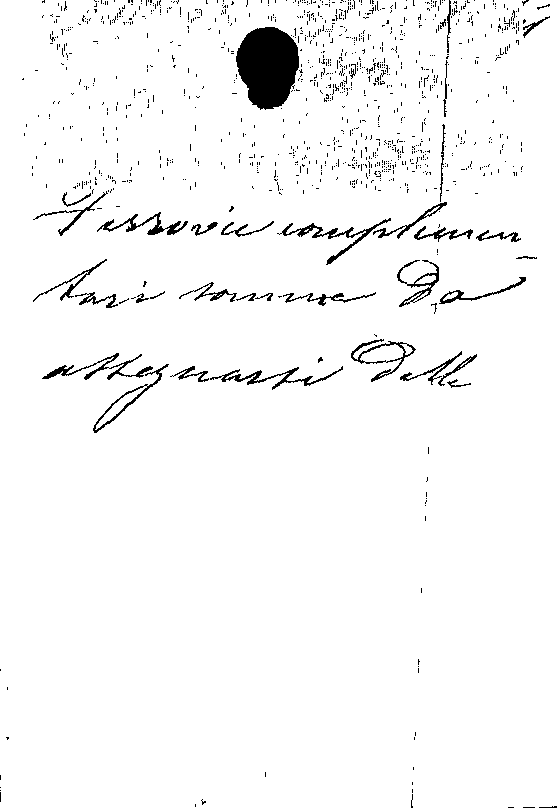 Ferrovie complemen-
tari somme da
assegnarsi dalle